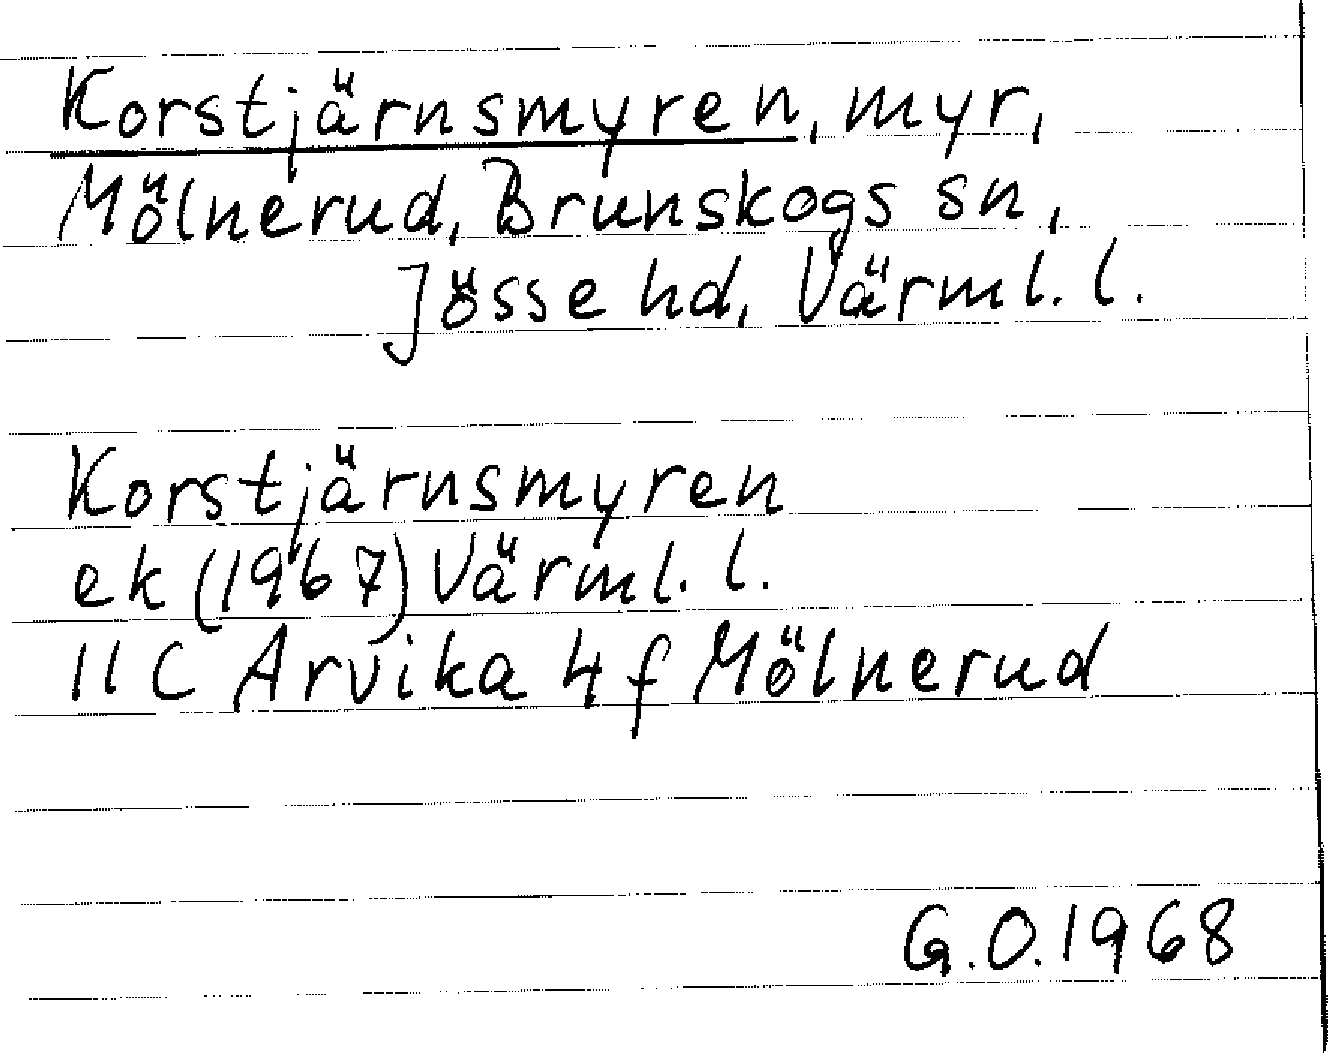 Korstjärnsmyren, myr,
Mölnerud, Brunskogs sn,
Jösse hd, Värml. l.
Korstjärnsmyren
ek (1967) Värml. l.
11 C Arvika 4 f Mölnerud
G.O. 1968